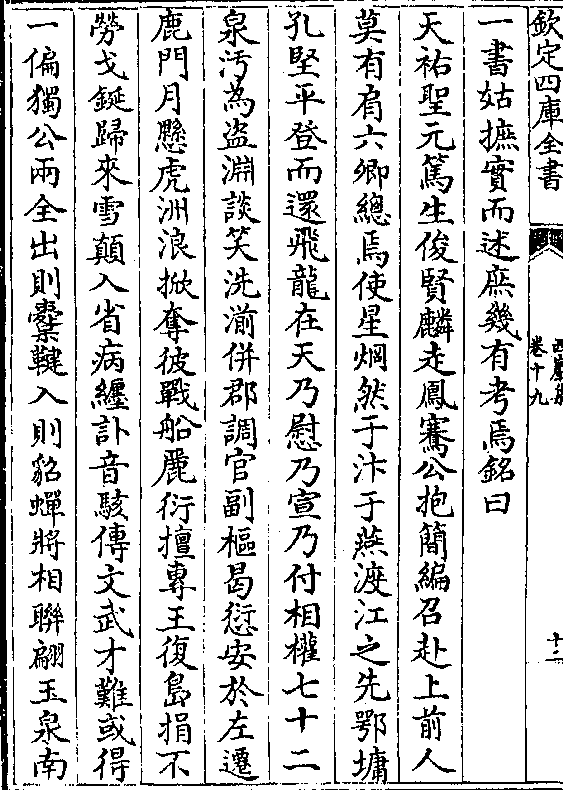 欽定四庫全書
西巖集
卷十九
十二
一書姑摭實而述庶幾有考焉銘曰
天祐聖元篤生俊賢麟走鳳騫公抱簡編召赴上前人
莫有肩六卿總焉使星烱然于汴于燕渡江之先鄂墉
孔堅平登而還飛龍在天乃慰乃宣乃付相權七十二
泉汚為盗淵談笑洗湔併郡調官副樞曷愆安於左遷
鹿門月懸虎洲浪掀奪彼戰船麗衍擅專王復島捐不
勞戈鋋歸來雪顛入省病纏訃音駭傳文武才難或得
一偏獨公兩全出則櫜鞬入則貂蟬將相聯翩玉泉南